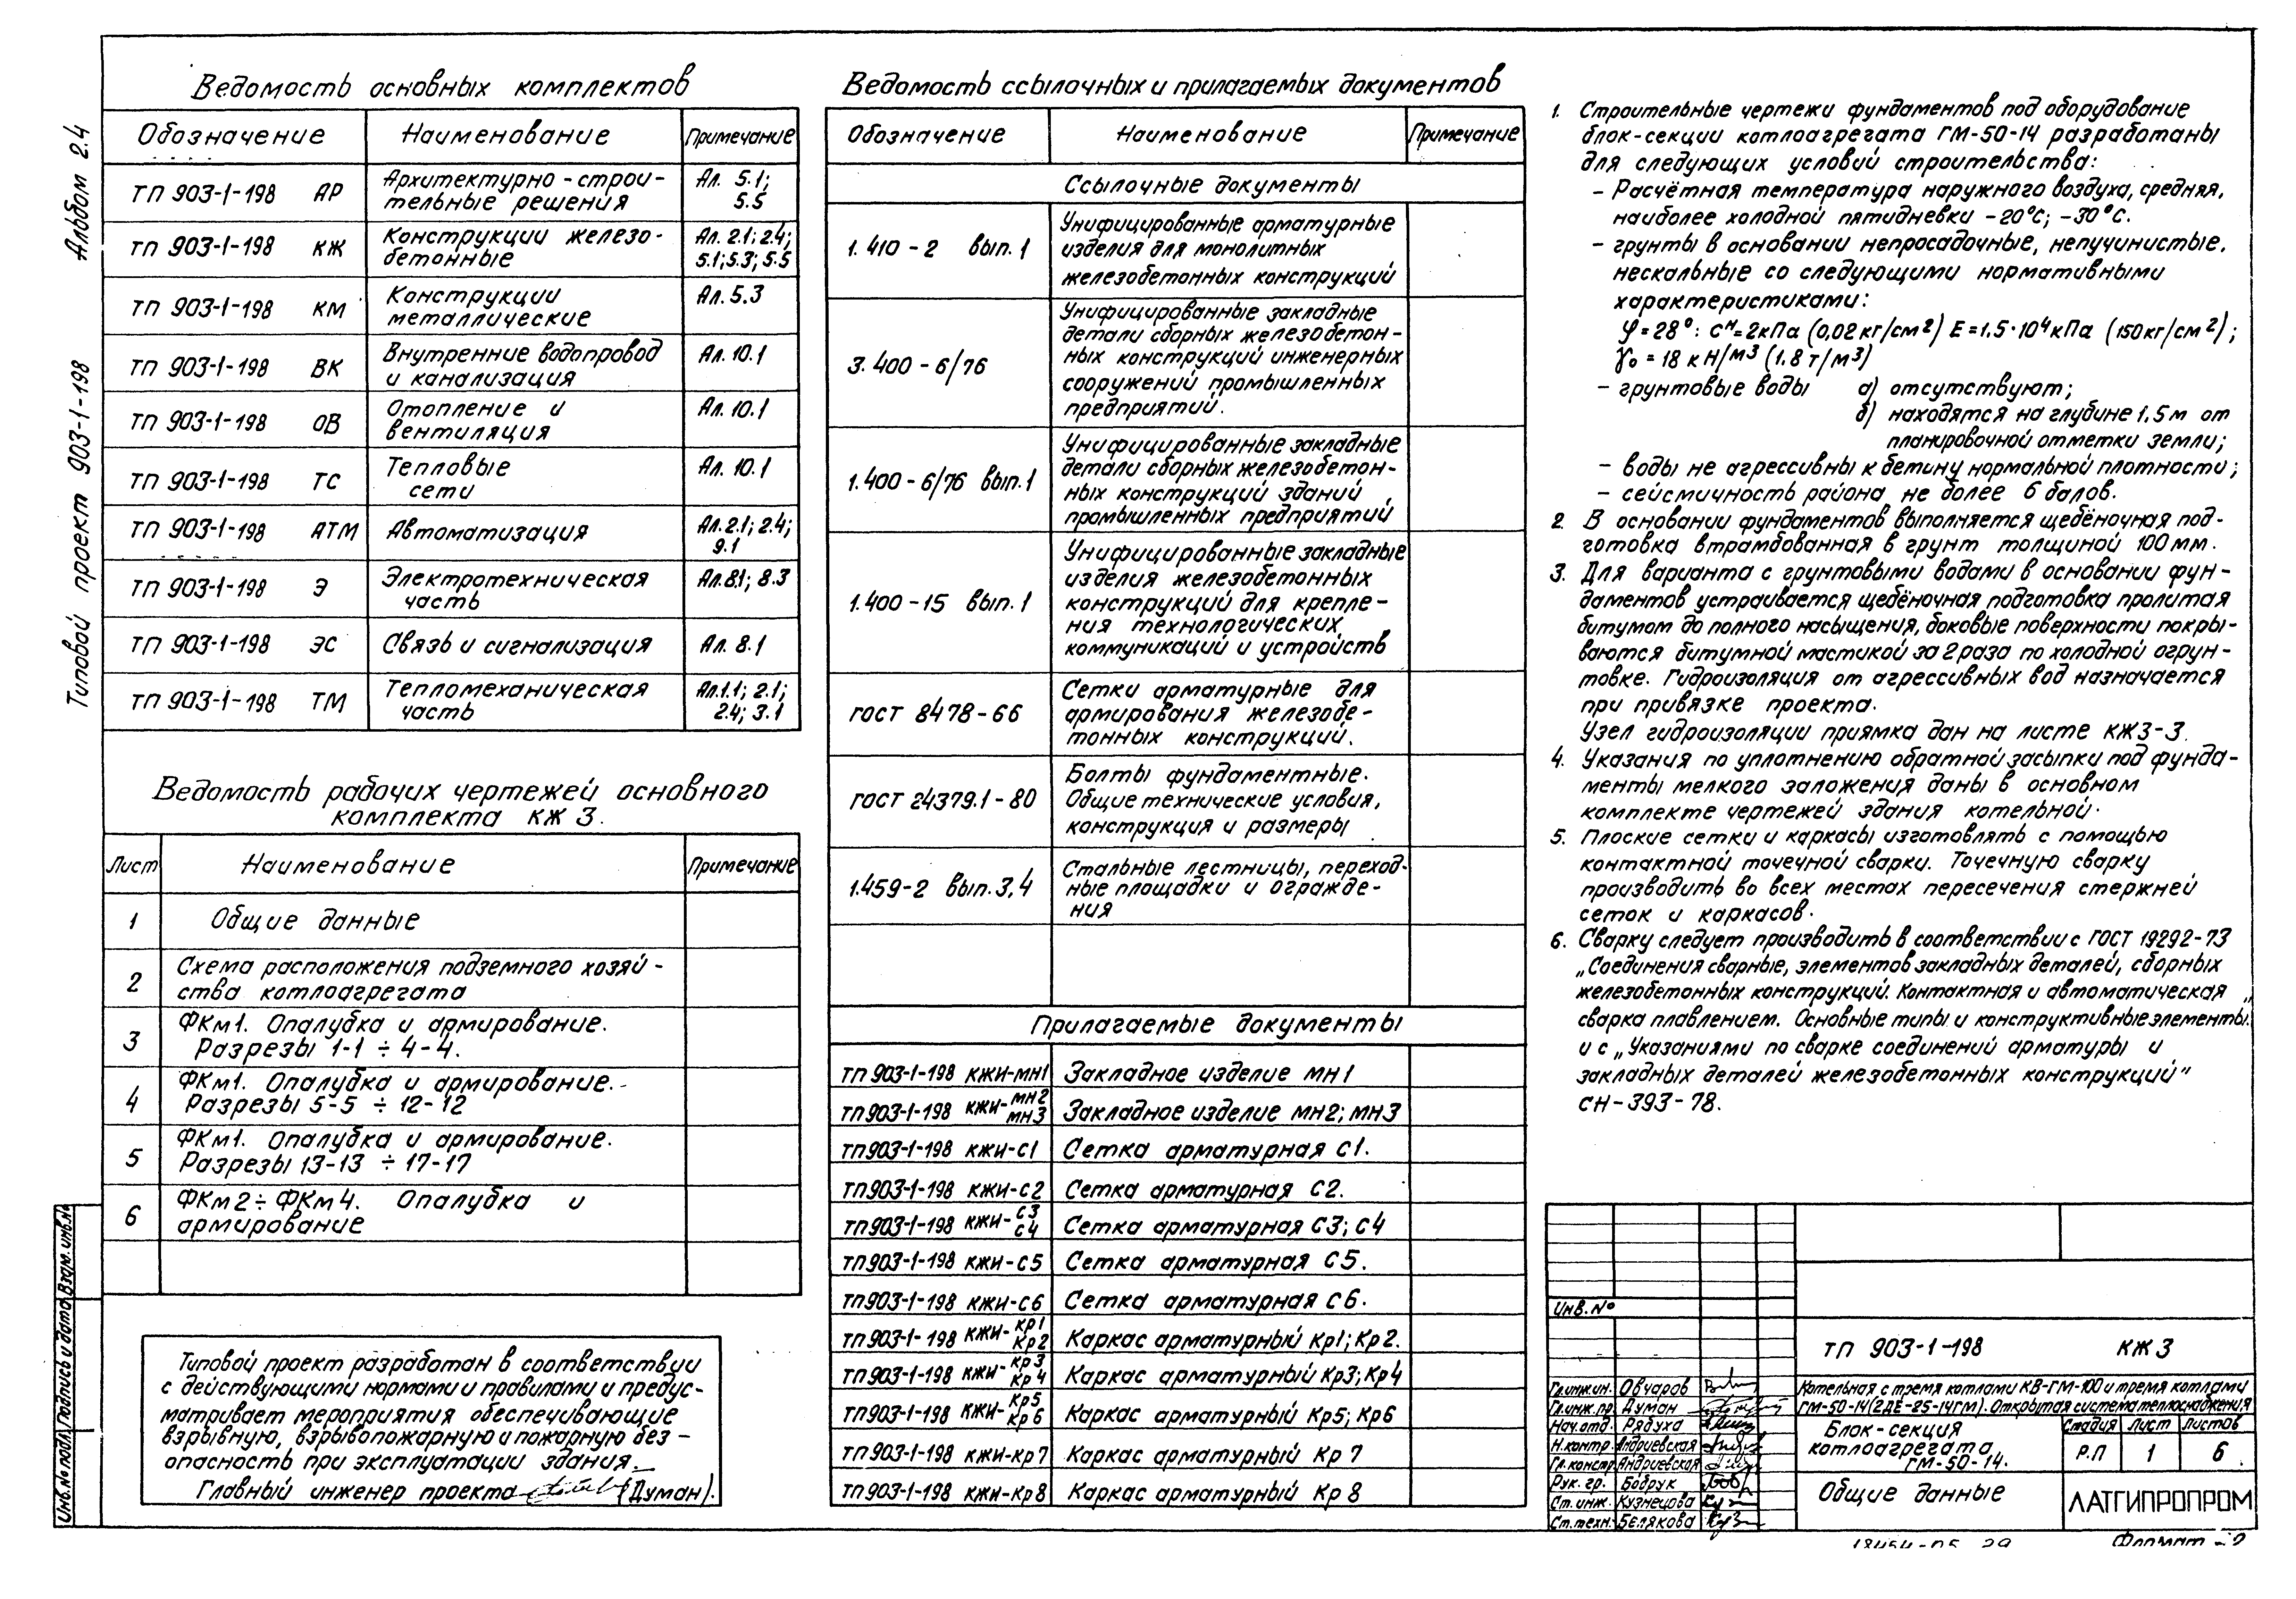 Альбом 2.4
Типовой проект 903-1-198
Ведомость основных комплектов
Обозначение Наименование Примечание
ТП 903-1-198 АР Архитектурно-строи-
тельные решения Ал. 5.1;
5.5
ТП 903-1-198 КЖ Конструкции железо-
бетонные Ал. 2.1; 2.4;
5.1; 5.3; 5.5
ТП 903-1-198 КМ Конструкции
металлические Ал. 5.3
ТП 903-1-198 ВК Внутренние водопровод
и канализация Ал. 10.1
ТП 903-1-198 ОВ Отопление и
вентиляция Ал. 10.1
ТП 903-1-198 ТС Тепловые
сети Ал. 10.1
ТП 903-1-198 АТМ Автоматизация Ал. 2.1; 2.4;
9.1
ТП 903-1-198 Э Электротехническая
часть Ал. 8.1; 8.3
ТП 903-1-198 ЭС Связь и сигнализация Ал. 8.1
ТП 903-1-198 ТМ Тепломеханическая
часть Ал. 1.1; 2.1;
2.4; 3.1
Ведомость рабочих чертежей основного
комплекта КЖ 3.
Лист Наименование Примечание
1 Общие данные
2 Схема расположения подземного хозяй-
ства котлоагрегата
3 ФКм1. Опалубка и армирование.
Разрезы 1-1 ÷ 4-4.
4 ФКм1. Опалубка и армирование.
Разрезы 5-5 ÷ 12-12
5 ФКм1. Опалубка и армирование.
Разрезы 13-13 ÷ 17-17
6 ФКм2 ÷ ФКм4. Опалубка и
армирование
Типовой проект разработан в соответствии
с действующими нормами и правилами и предус-
матривает мероприятия обеспечивающие
взрывную, взрывопожарную и пожарную без-
опасность при эксплуатации здания.
Главный инженер проекта (Думан).
Инв. № подл. Подпись и дата Взам. инв. №
Ведомость ссылочных и прилагаемых документов
Обозначение Наименование Примечание
Ссылочные документы
1. 410-2 вып. 1 Унифицированные арматурные
изделия для монолитных
железобетонных конструкций
3. 400-6/76 Унифицированные закладные
детали сборных железобетон-
ных конструкций инженерных
сооружений промышленных
предприятий.
1.400-6/76 вып. 1 Унифицированные закладные
детали сборных железобетон-
ных конструкций зданий
промышленных предприятий
1.400-15 вып. 1 Унифицированные закладные
изделия железобетонных
конструкций для крепле-
ния технологических
коммуникаций и устройств
ГОСТ 8478-66 Сетки арматурные для
армирования железобе-
тонных конструкций.
ГОСТ 24379.1-80 Болты фундаментные.
Общие технические условия,
конструкция и размеры
1.459-2 вып. 3, 4 Стальные лестницы, переход-
ные площадки и огражде-
ния
Прилагаемые документы
ТП 903-1-198 КЖИ-МН1 Закладное изделие МН1
ТП 903-1-198 КЖИ-МН2 МН3 Закладное изделие МН2; МН3
ТП 903-1-198 КЖИ-С1 Сетка арматурная С1.
ТП 903-1-198 КЖИ-С2 Сетка арматурная С2.
ТП 903-1-198 КЖИ-С3 С4 Сетка арматурная С3; С4
ТП 903-1-198 КЖИ-С5 Сетка арматурная С5.
ТП 903-1-198 КЖИ-С6 Сетка арматурная С6.
ТП 903-1-198 КЖИ-Кр1 Кр2 Каркас арматурный Кр1; Кр2.
ТП 903-1-198 КЖИ-Кр3 Кр4 Каркас арматурный Кр3; Кр4
ТП 903-1-198 КЖИ-Кр5 Кр6 Каркас арматурный Кр5; Кр6
ТП 903-1-198 КЖИ-Кр7 Каркас арматурный Кр7
ТП 903-1-198 КЖИ-Кр8 Каркас арматурный Кр8
1. Строительные чертежи фундаментов под оборудование
блок-секции котлоагрегата ГМ-50-14 разработаны
для следующих условий строительства:
- Расчётная температура наружного воздуха, средняя,
наиболее холодной пятидневки -20°С; -30°С.
- грунты в основании непросадочные, непучинистые,
нескальные со следующими нормативными
характеристиками:
φ=28°: Cᴴ=2кПа (0,02 кг/см²) Е=1.5·10⁴кПа (150кг/см²);
γ₀=18 кН/м³ (1.8 т/м³)
- грунтовые воды а) отсутствуют;
б) находятся на глубине 1.5м от
планировочной отметки земли;
- воды не агрессивны к бетину нормальной плотности;
- сейсмичность района не более 6 балов.
2. В основании фундаментов выполняется щебёночная под-
готовка втрамбованная в грунт толщиной 100 мм.
3. Для варианта с грунтовыми водами в основании фун-
даментов устраивается щебёночная подготовка пролитая
битумом до полного насыщения, боковые поверхности покры-
ваются битумной мастикой за 2 раза по холодной огрун-
товке. Гидроизоляция от агрессивных вод назначается
при привязке проекта.
Узел гидроизоляции приямка дан на листе КЖ3-3.
4. Указания по уплотнению обратной засыпки под фунда-
менты мелкого заложения даны в основном
комплекте чертежей здания котельной.
5. Плоские сетки и каркасы изготовлять с помощью
контактной точечной сварки. Точечную сварку
производить во всех местах пересечения стержней
сеток и каркасов.
6. Сварку следует производить в соответствии с ГОСТ 19292-73
„Соединения сварные, элементов закладных деталей, сборных
железобетонных конструкций. Контактная и автоматическая
сварка плавлением. Основные типы и конструктивные элементы"
и с „Указаниями по сварке соединений арматуры и
закладных деталей железобетонных конструкций"
СН-393-78.
Инв. №
ТП 903-1-198 КЖ 3
Гл. инж. ин. Овчаров
Гл. инж. пр. Думан
Нач. отд. Рядуха
Н. контр. Андриевская
Гл. констр. Андриевская
Рук. гр. Бобрук
Ст. инж. Кузнецова
Ст. техн. Белякова
Котельная с тремя котлами КВ-ГМ-100 и тремя котлами
ГМ-50-14 (2ДЕ-25-14ГМ). Открытая система теплоснабжения
Блок-секция
котлоагрегата
ГМ-50-14.
Стадия Лист Листов
Р.П 1 6
Общие данные
ЛАТГИПРОПРОМ
Формат